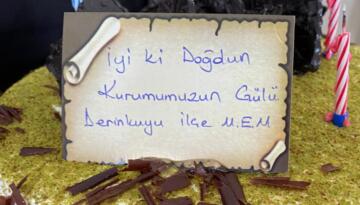 İyi ki Doğdun
Kurumumuzun Gülü
Derinkuyu ilçe M.E.M